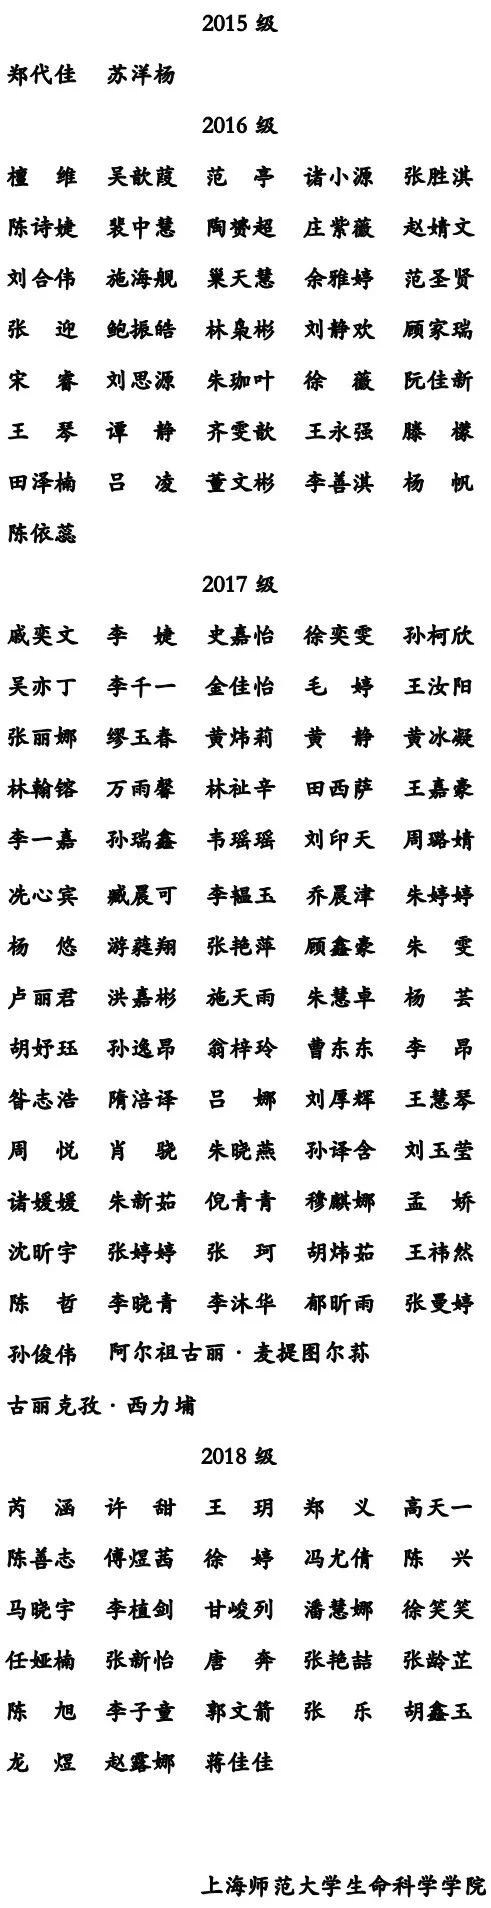 2015 级
郑代佳 苏洋杨
2016 级
檀 维 吴歆葭 范 亭 诸小源 张胜淇
陈诗婕 裴中慧 陶赟超 庄紫薇 赵婧文
刘合伟 施海舰 巢天慧 余雅婷 范圣贤
张 迎 鲍振皓 林枭彬 刘静欢 顾家瑞
宋 睿 刘思源 朱珈叶 徐 薇 阮佳新
王 琴 谭 静 齐雯歆 王永强 滕 檬
田泽楠 吕 凌 董文彬 李善淇 杨 帆
陈依蕊
2017 级
戚奕文 李 婕 史嘉怡 徐奕雯 孙柯欣
吴亦丁 李千一 金佳怡 毛 婷 王汝阳
张丽娜 缪玉春 黄炜莉 黄 静 黄冰凝
林翰镕 万雨馨 林祉辛 田西萨 王嘉豪
李一嘉 孙瑞鑫 韦瑶瑶 刘印天 周璐婧
冼心宾 臧晨可 李韫玉 乔晨津 朱婷婷
杨 悠 游蕤翔 张艳萍 顾鑫豪 朱 雯
卢丽君 洪嘉彬 施天雨 朱慧卓 杨 芸
胡妤珏 孙逸昂 翁梓玲 曹东东 李 昂
昝志浩 隋涪译 吕 娜 刘厚辉 王慧琴
周 悦 肖 骁 朱晓燕 孙译含 刘玉莹
诸媛媛 朱新茹 倪青青 穆麒娜 孟 娇
沈昕宇 张婷婷 张 珂 胡炜茹 王祎然
陈 哲 李晓青 李沐华 郁昕雨 张曼婷
孙俊伟 阿尔祖古丽·麦提图尔荪
古丽克孜·西力埔
2018 级
芮 涵 许 甜 王 玥 郑 义 高天一
陈善志 傅煜茜 徐 婷 冯尤倩 陈 兴
马晓宇 李植剑 甘峻列 潘慧娜 徐笑笑
任娅楠 张新怡 唐 奔 张艳喆 张龄芷
陈 旭 李子童 郭文箭 张 乐 胡鑫玉
龙 煜 赵露娜 蒋佳佳
上海师范大学生命科学学院